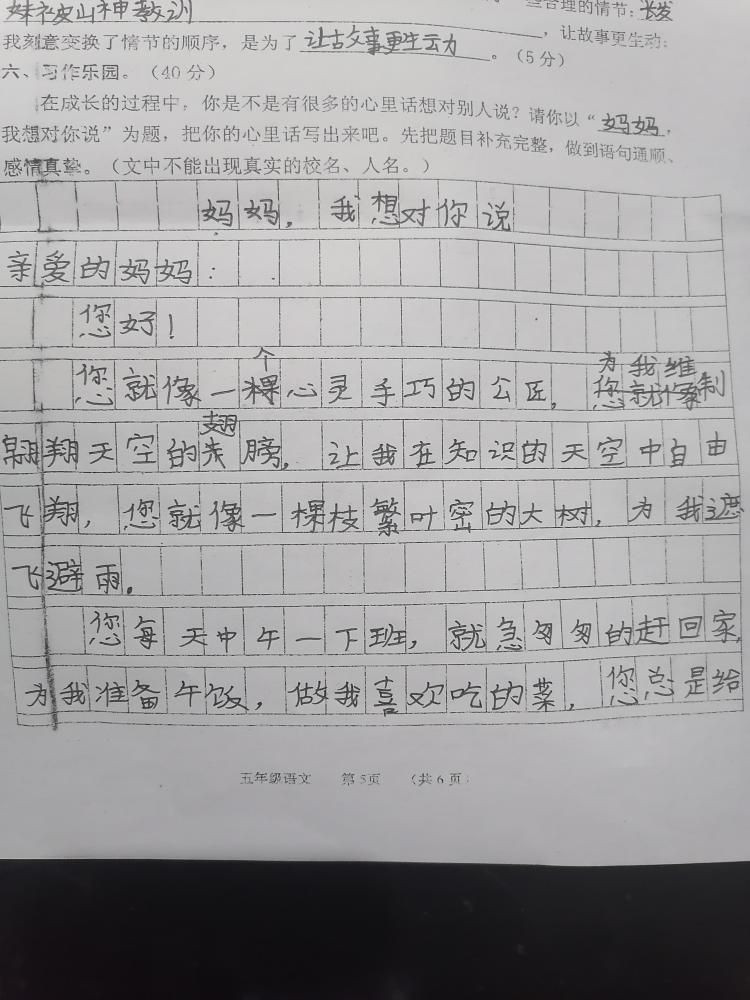 妹被山神教训 些合理的情节：长发
我刻意变换了情节的顺序，是为了让故事更生动。（5分） ，让故事更生动；
六、习作乐园。（40分）
在成长的过程中，你是不是有很多的心里话想对别人说？请你以“妈妈，
我想对你说”为题，把你的心里话写出来吧。先把题目补充完整，做到语句通顺、
感情真挚。（文中不能出现真实的校名、人名。）
妈妈，我想对你说
亲爱的妈妈：
您好！
您就像一个心灵手巧的公匠，为我维制
翱翔天空的翅膀，让我在知识的天空中自由
飞翔，您就像一棵枝繁叶密的大树，为我遮
飞避雨。
您每天中午一下班，就急匆匆的赶回家，
为我准备午饭，做我喜欢吃的菜，您总是给
五年级语文 第5页 （共6页）